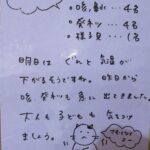 ・咳、鼻水… 4名
・発熱 … 4名
・様子見 … 1名
明日は ぐんと 気温が
下がるそうですね。昨日から
咳、発熱も 多く 出てきました。
大人も 子どもも 気をつけ
ましょう。